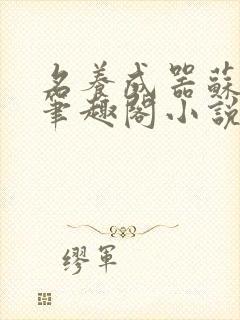 名養成器蘇
筆趣閣小說
繆軍